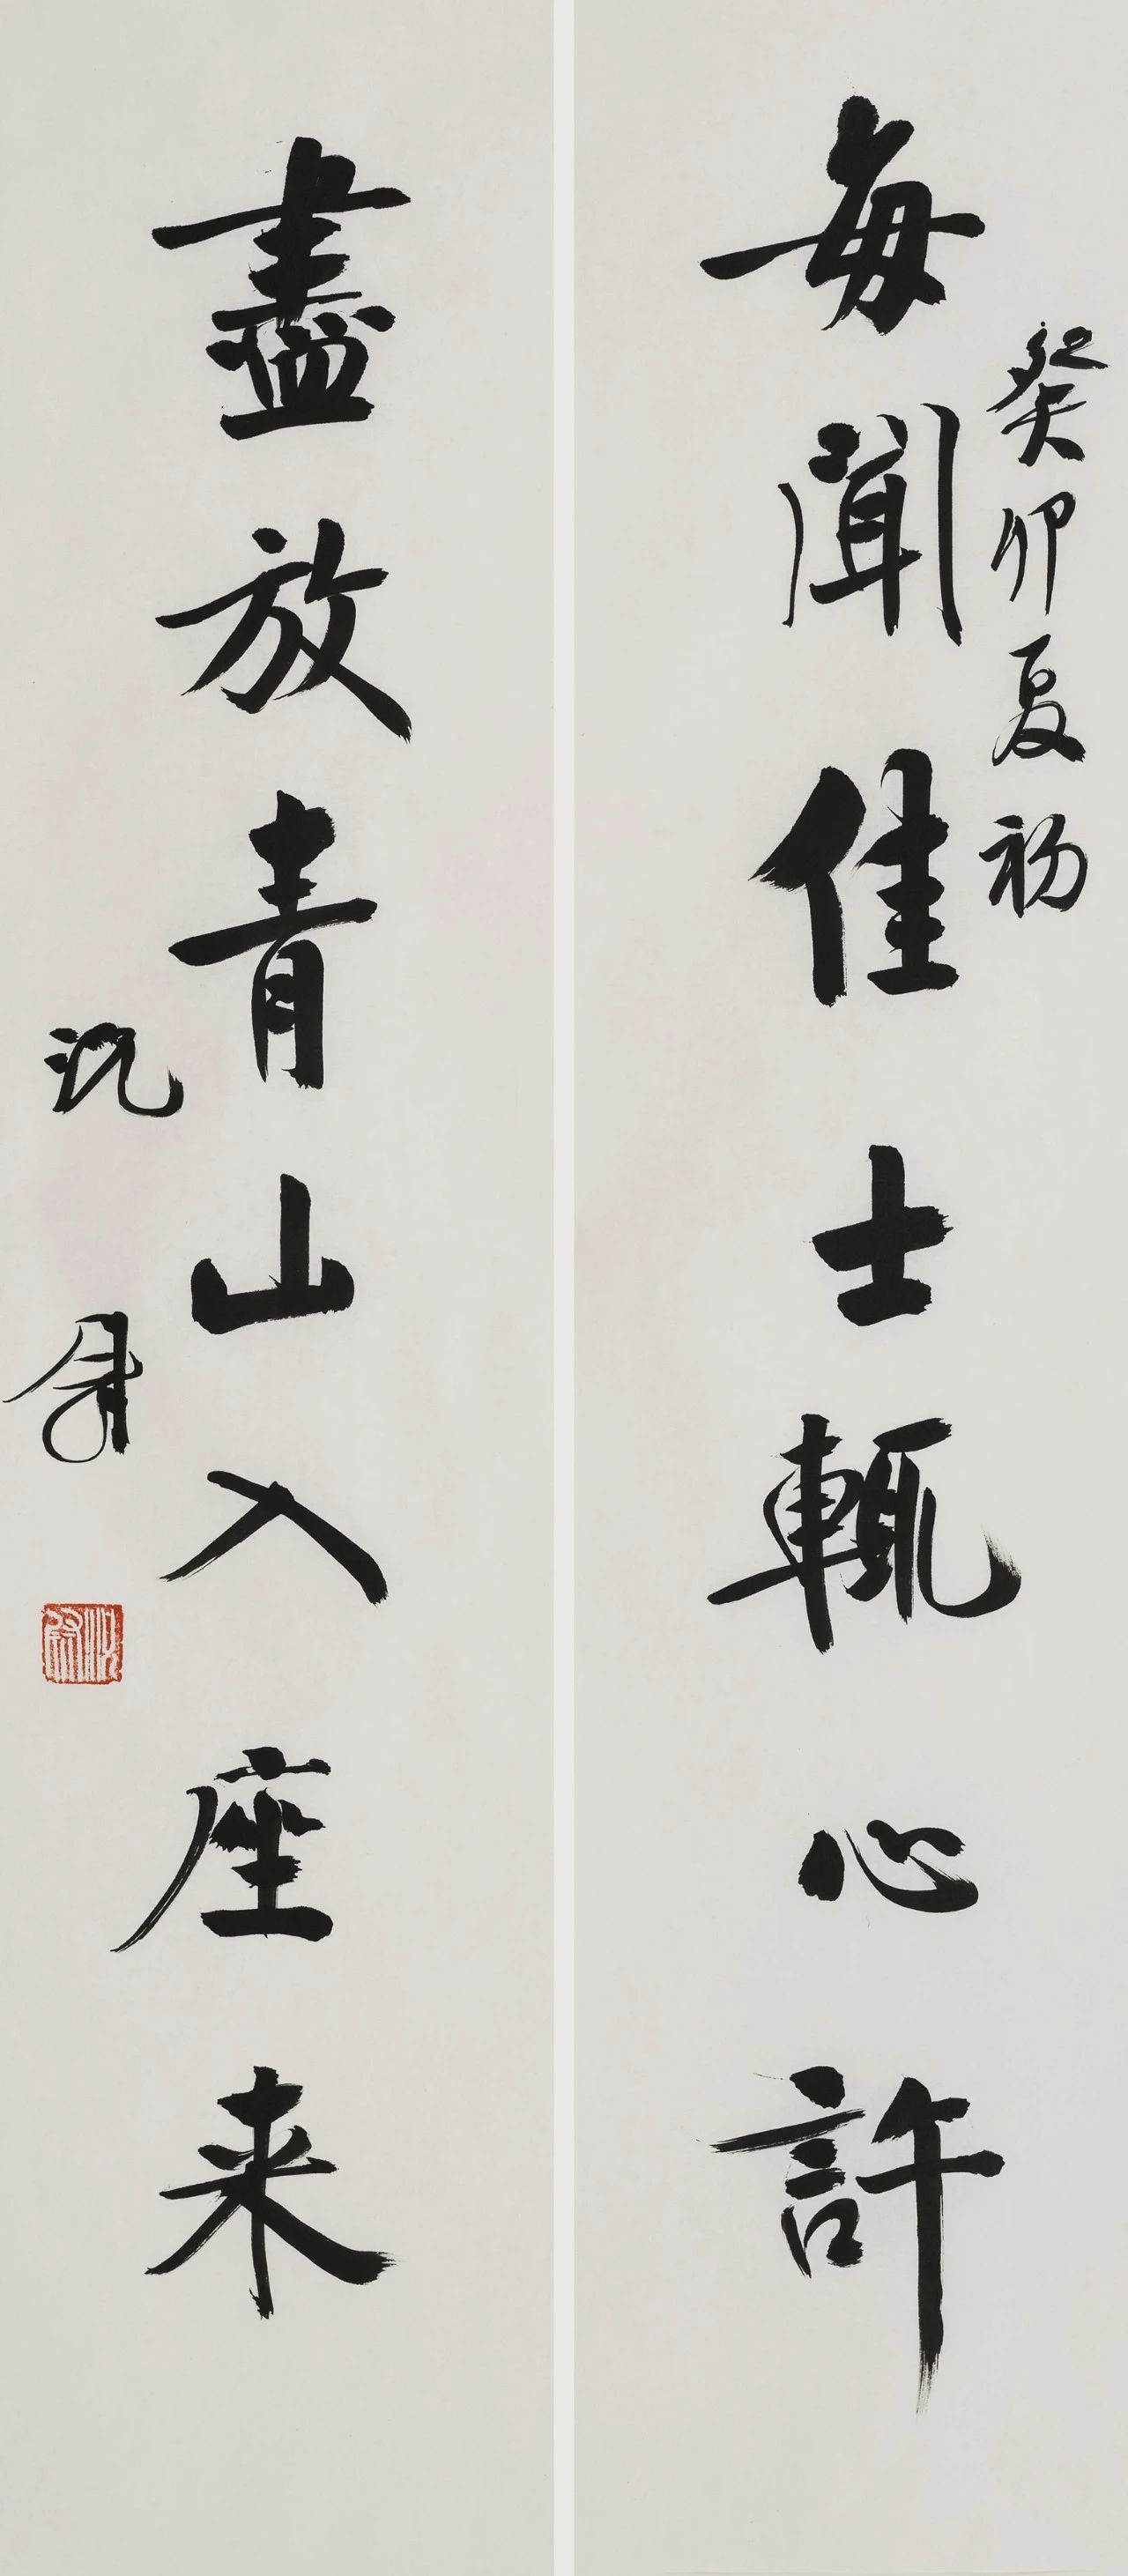 每聞佳士輒心許
癸卯夏初
盡放青山入座来
沈